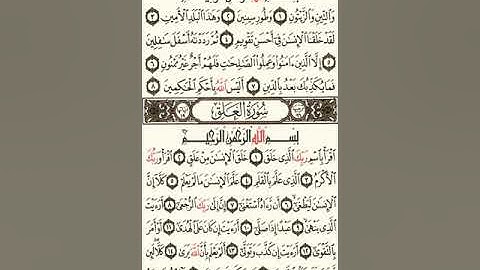 وَٱلتِّينِ وَٱلزَّيْتُونِ ١ وَطُورِ سِينِينَ ٢ وَهَٰذَا ٱلْبَلَدِ ٱلْأَمِينِ ٣
لَقَدْ خَلَقْنَا ٱلْإِنسَٰنَ فِىٓ أَحْسَنِ تَقْوِيمٍ ٤ ثُمَّ رَدَدْنَٰهُ أَسْفَلَ سَٰفِلِينَ
٥ إِلَّا ٱلَّذِينَ ءَامَنُوا۟ وَعَمِلُوا۟ ٱلصَّٰلِحَٰتِ فَلَهُمْ أَجْرٌ غَيْرُ مَمْنُونٍ ٦
فَمَا يُكَذِّبُكَ بَعْدُ بِٱلدِّينِ ٧ أَلَيْسَ ٱللَّهُ بِأَحْكَمِ ٱلْحَٰكِمِينَ ٨
سُورَةُ العَلَقِ
بِسْمِ ٱللَّهِ ٱلرَّحْمَٰنِ ٱلرَّحِيمِ
ٱقْرَأْ بِٱسْمِ رَبِّكَ ٱلَّذِى خَلَقَ ١ خَلَقَ ٱلْإِنسَٰنَ مِنْ عَلَقٍ ٢ ٱقْرَأْ وَرَبُّكَ
ٱلْأَكْرَمُ ٣ ٱلَّذِى عَلَّمَ بِٱلْقَلَمِ ٤ عَلَّمَ ٱلْإِنسَٰنَ مَا لَمْ يَعْلَمْ ٥ كَلَّآ إِنَّ
ٱلْإِنسَٰنَ لَيَطْغَىٰٓ ٦ أَن رَّءَاهُ ٱسْتَغْنَىٰٓ ٧ إِنَّ إِلَىٰ رَبِّكَ ٱلرُّجْعَىٰٓ ٨ أَرَءَيْتَ
ٱلَّذِى يَنْهَىٰ ٩ عَبْدًا إِذَا صَلَّىٰٓ ١٠ أَرَءَيْتَ إِن كَانَ عَلَى ٱلْهُدَىٰٓ ١١ أَوْ أَمَرَ
بِٱلتَّقْوَىٰٓ ١٢ أَرَءَيْتَ إِن كَذَّبَ وَتَوَلَّىٰٓ ١٣ أَلَمْ يَعْلَم بِأَنَّ ٱللَّهَ يَرَىٰ ١٤ كَلَّا لَئِن